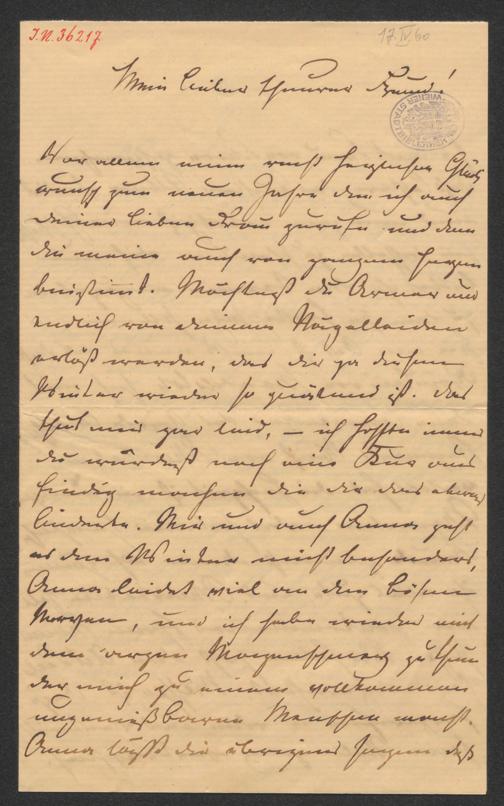 I.N. 36217
17.IV.60
Mein lieber theurer Freund!
Vor allem einen recht herzlichen Glück
wunsch zum neuen Jahre den ich auch
deiner lieben Frau zurufe und dem
die meine auch von ganzem Herzen
beistimmt. Möchtest du Armer nun
endlich von deinem Nagelleiden
erlöst werden, das dir ja diesen
Winter wieder so quälend ist. Das
thut mir gar leid, – ich hoffte immer
du würdest noch eine Kur aus
findig machen die dir das etwas
linderte. Mir und auch Anna geht
es den Winter nicht besonders,
Anna leidet viel an den bösen
Nerven, und ich habe wieder mit
dem argen Magenschmerz zu thun
der mich zu einem vollkommen
ungenießbaren Menschen macht.
Anna läßt dir übrigens sagen daß